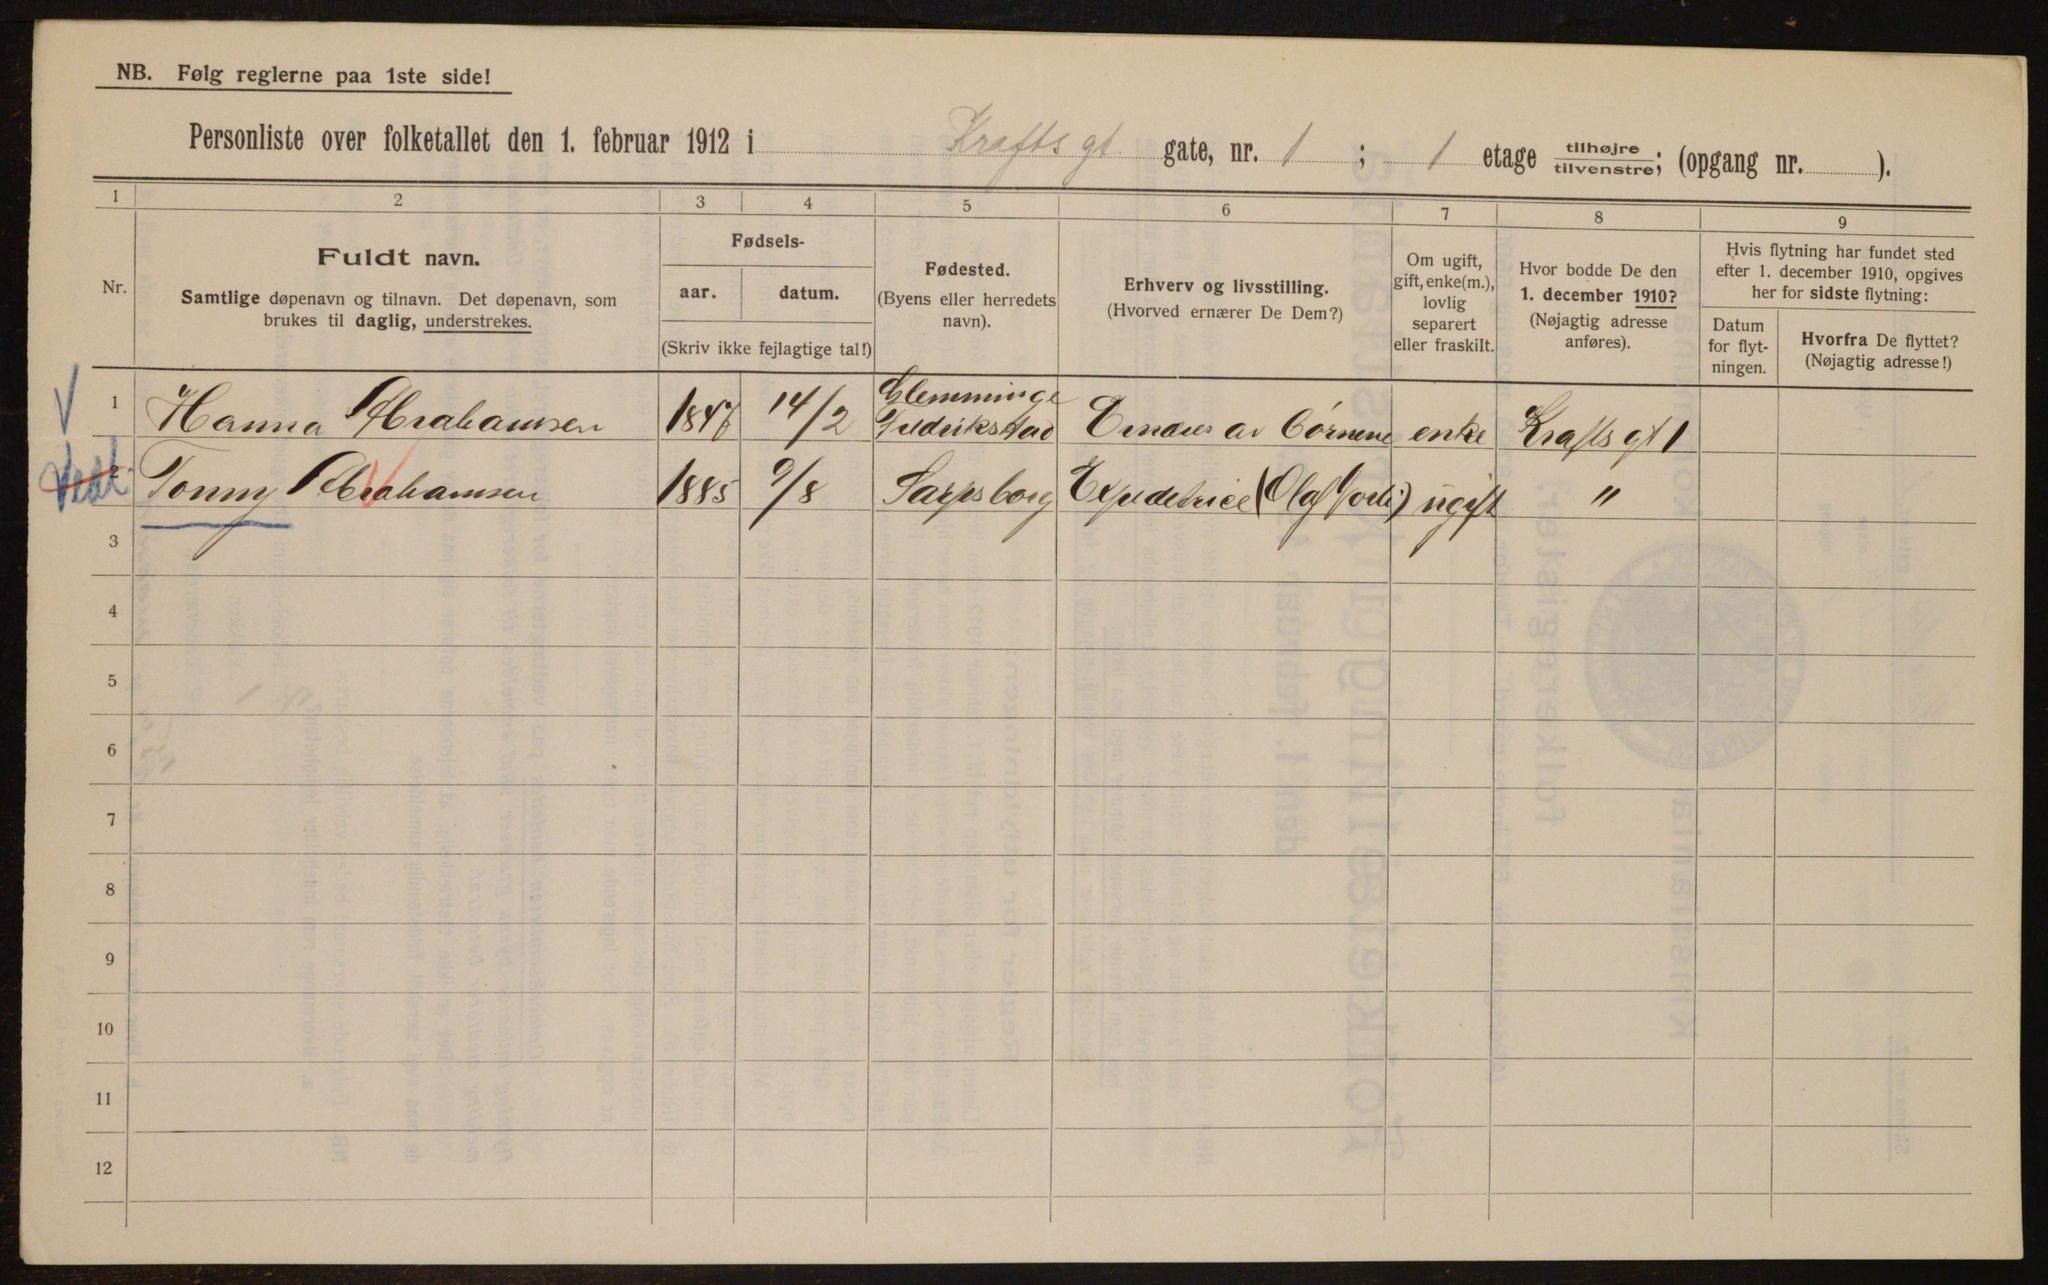 NB. Følg reglerne paa 1ste side!
Personliste over folketallet den 1. februar 1912 i Krafts gt gate, nr. 1; 1 etage tilhøjre/tilvenstre; (opgang nr. ).
1 2 3 4 5 6 7 8 9
Nr.
Fuldt navn.
Samtlige døpenavn og tilnavn. Det døpenavn, som
brukes til daglig, understrekes.
Fødsels-
aar. datum.
(Skriv ikke fejlagtige tal!)
Fødested.
(Byens eller herredets
navn).
Erhverv og livsstilling.
(Hvorved ernærer De Dem?)
Om ugift,
gift, enke(m.),
lovlig
separert
eller fraskilt.
Hvor bodde De den
1. december 1910?
(Nøjagtig adresse
anføres).
Hvis flytning har fundet sted
efter 1. december 1910, opgives
her for sidste flytning:
Datum
for flyt-
ningen.
Hvorfra De flyttet?
(Nøjagtig adresse!)
1 Hanna Abrahamsen 14/2 Glemminge
Fredrikstad av Børnene enke Krafts gt 1
2 Tonny Abrahamsen 1885 9/8 Sarpsborg Expeditrice (Olaf ) ugift "
3
4
5
6
7
8
9
10
11
12